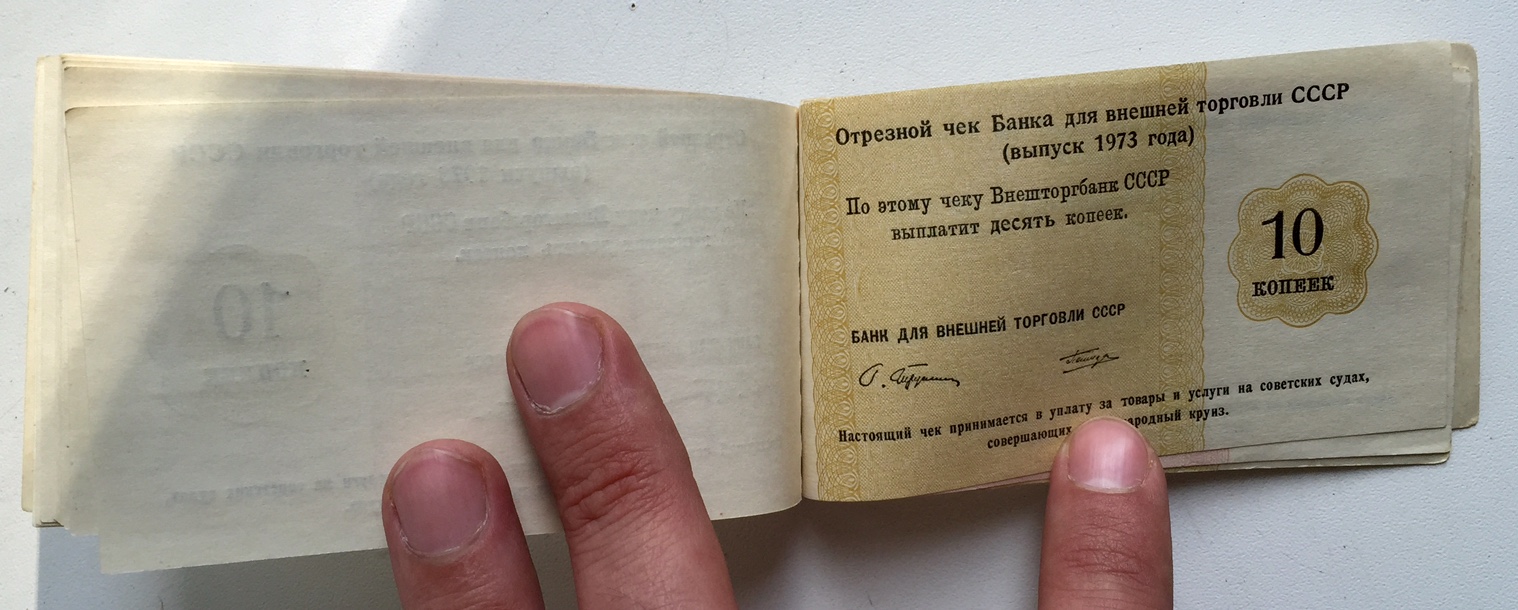 Отрезной чек Банка для внешней торговли СССР
(выпуск 1973 года)
По этому чеку Внешторгбанк СССР
выплатит десять копеек.
10
КОПЕЕК
БАНК ДЛЯ ВНЕШНЕЙ ТОРГОВЛИ СССР
Настоящий чек принимается в уплату за товары и услуги на советских судах,
совершающих народный круиз.